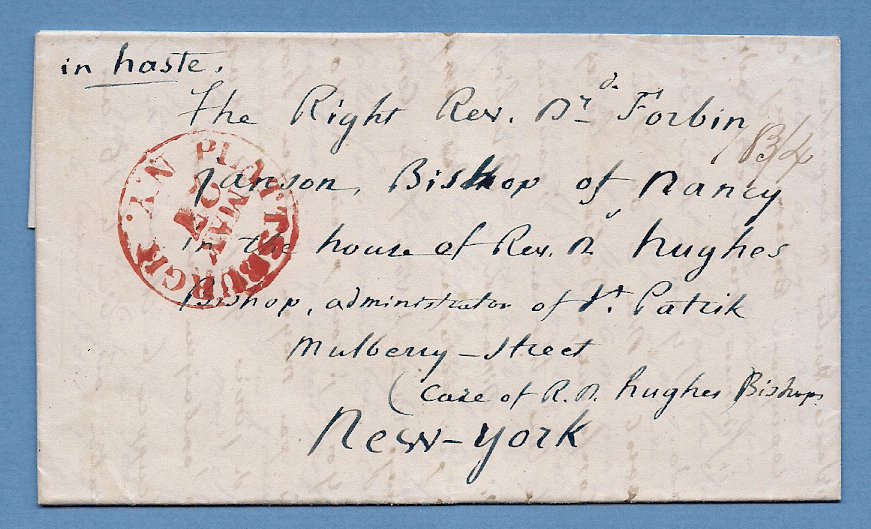 in haste.
The Right Rev. Dr. de Forbin
18 3/4
Janson, Bishop of Nancy
in the house of Rev. Dr hughes
Bishop, administrator of St. Patrik
Mulberry-Street
(Care of R. D. hughes) Bishop
New-york
PLATTSBURGH N.Y
MAY